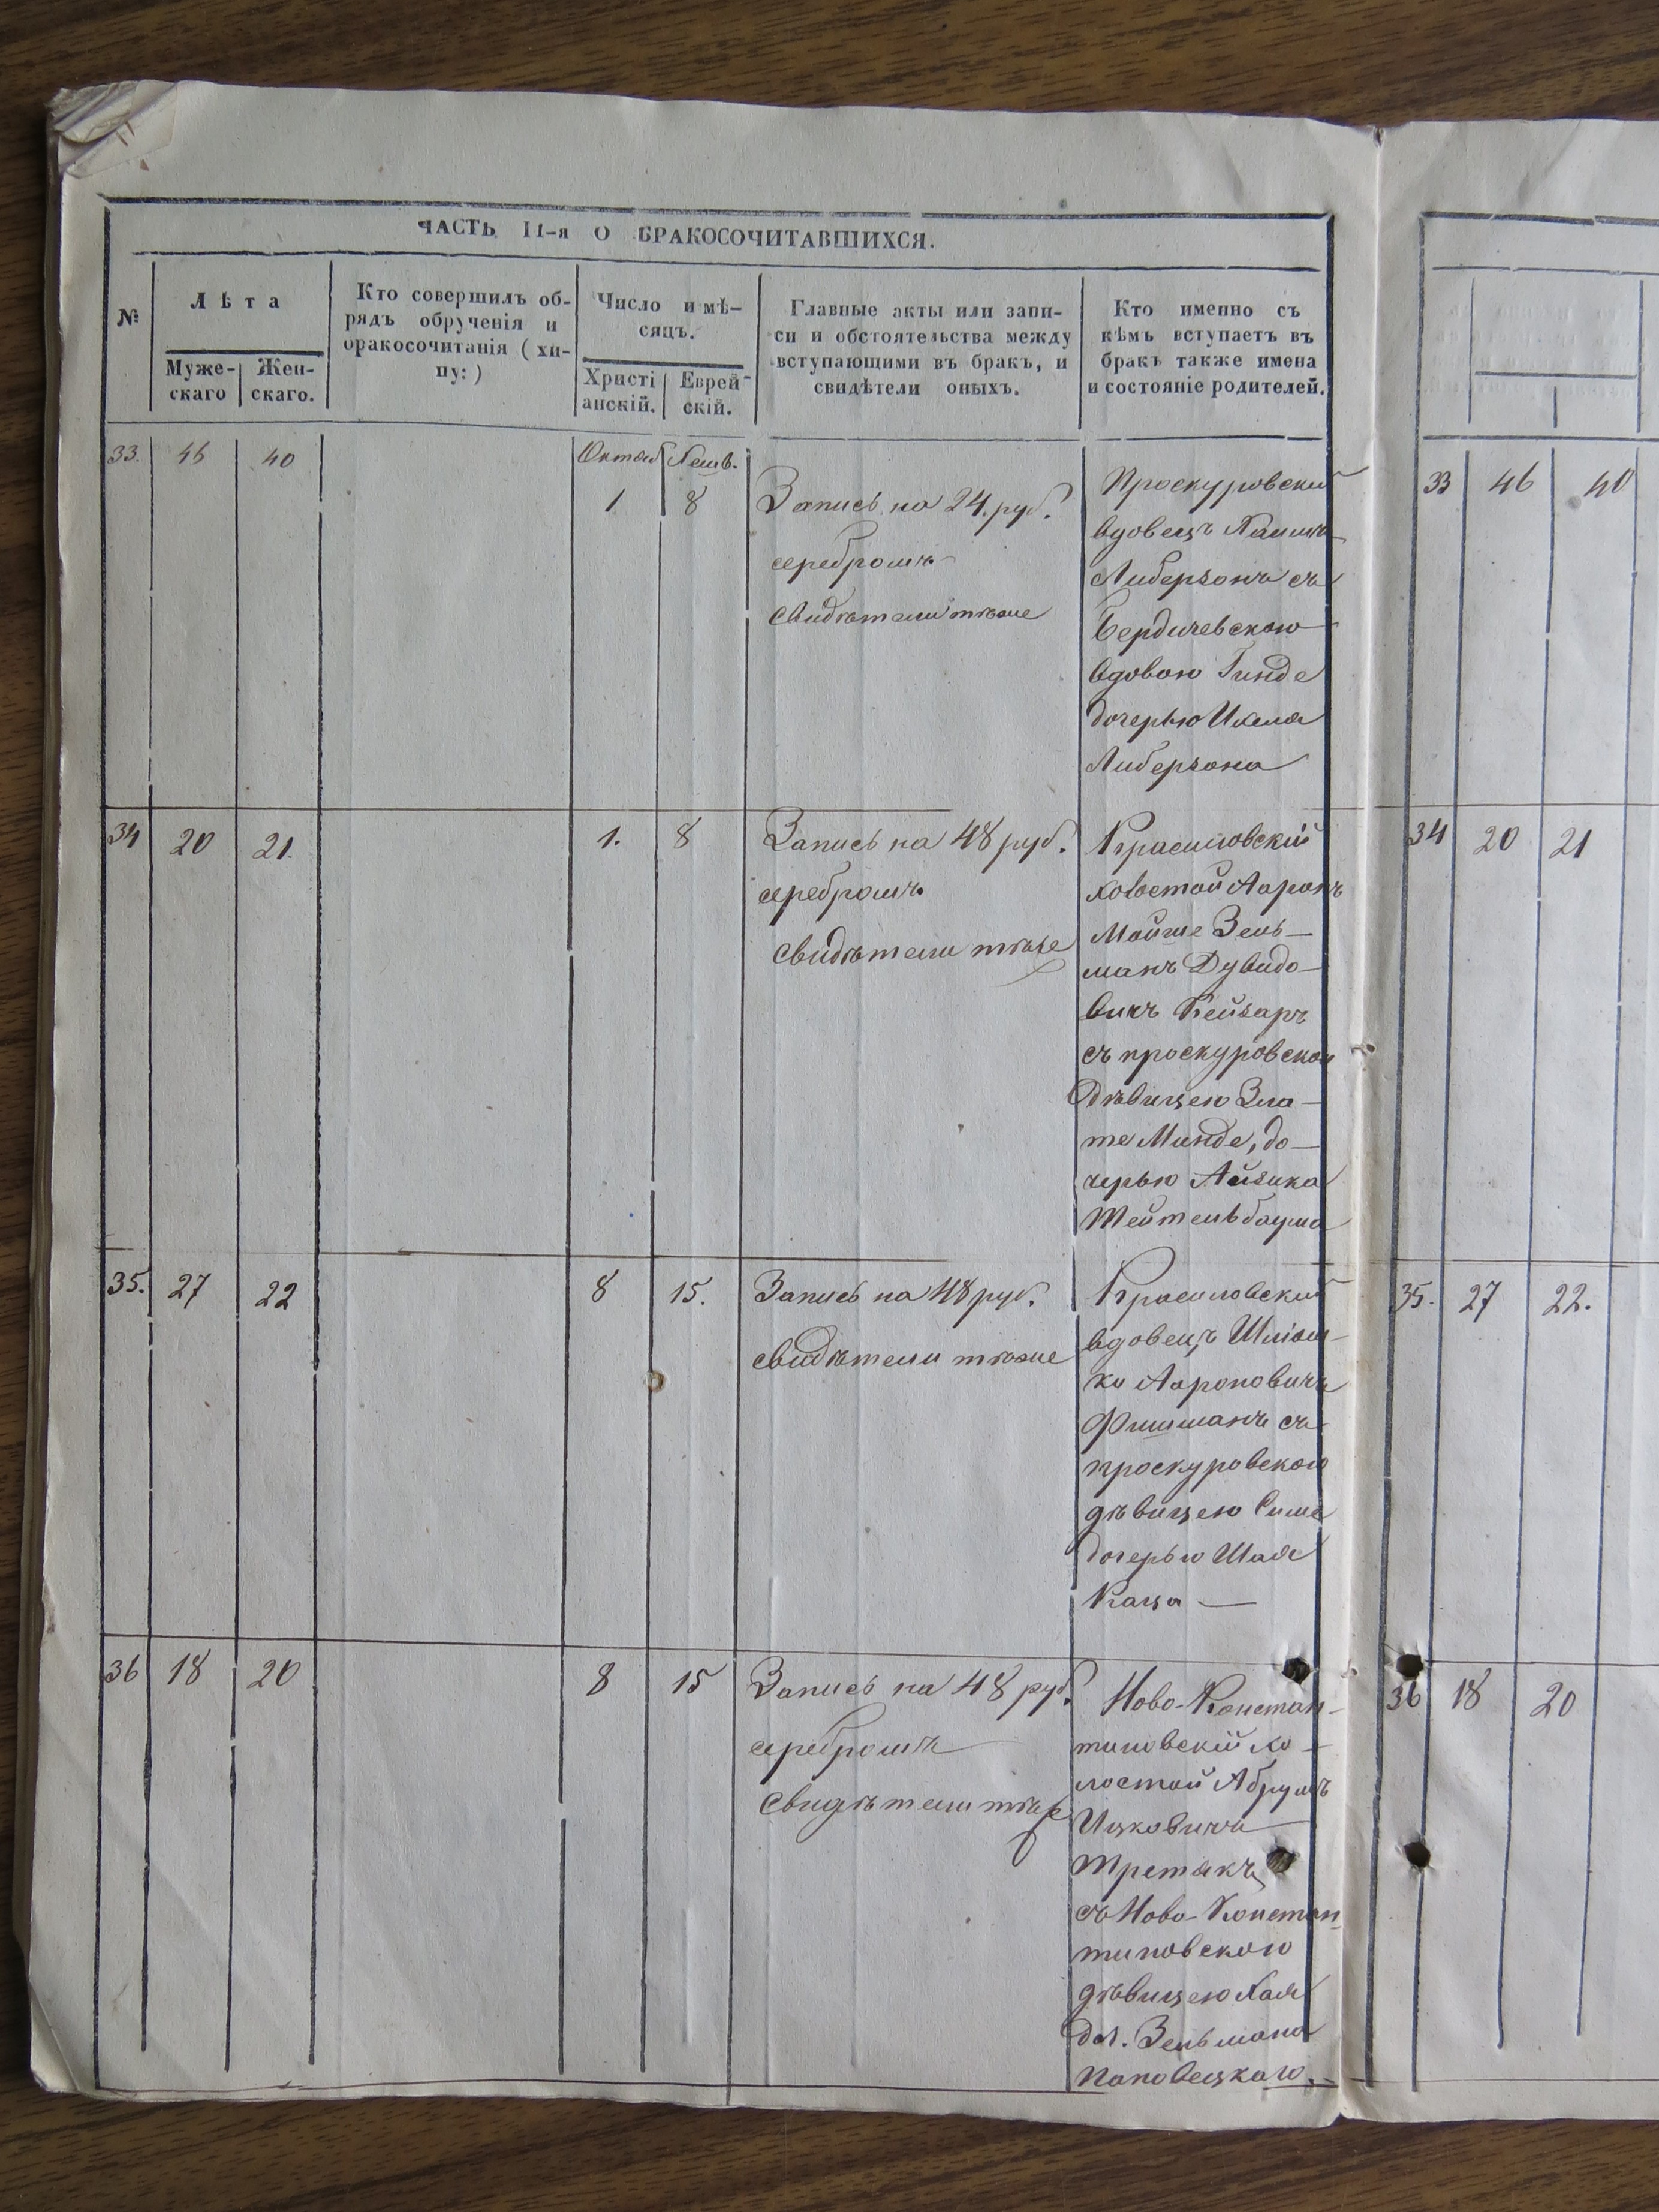 ЧАСТЬ II-я О БРАКОСОЧИТАВШИХСЯ.
№
Лѣта
Муже-
скаго
Жен-
скаго.
Кто совершилъ об-
рядъ обрученія и
бракосочитанія (хи-
пу:)
Число и мѣ-
сяцъ.
Христі
анскій.
Еврей-
скій.
Главные акты или запи-
си и обстоятельства между
вступающими въ бракъ, и
свидѣтели оныхъ.
Кто именно съ
кѣмъ вступаетъ въ
бракъ также имена
и состояніе родителей.
33. 46 40
Октяб
1 8
Запись на 24. руб.
серебромъ
Свидѣтели тѣже
Проскуровский
вдовецъ
Либерзонъ съ
Бердичевскою
вдовою Гинде
дочерью Икеля
Либерзона
34 20 21. 1. 8
Запись на 48 руб.
серебромъ
свидѣтели тѣже
Красиловскій
холостой Ааронъ
Мойше Зель-
манъ Дувидо-
вичъ Кейзаръ
съ проскуровскою
дѣвицею Зла-
те Минде, до-
черью Айзика
Тейтельбаума
35. 27 22 8 15.
Запись на 48 руб.
свидѣтели тѣже
Красиловский
вдовецъ Шліом-
ко Аароновичъ
Фишманъ съ
проскуровскою
дѣвицею Симе
дочерью Шая
Каца —
36 18 20 8 15
Запись на 48 руб.
серебромъ
Свидѣтели тѣже
Ново-Констан-
тиновскій хо-
лостой Абрумъ
Ицковичъ
Третякъ
съ Ново-Констан-
тиновскою
дѣвицею Хая
доч. Зельмана
Паповецкаго.
33 46 40
34 20 21
35. 27 22.
36 18 20